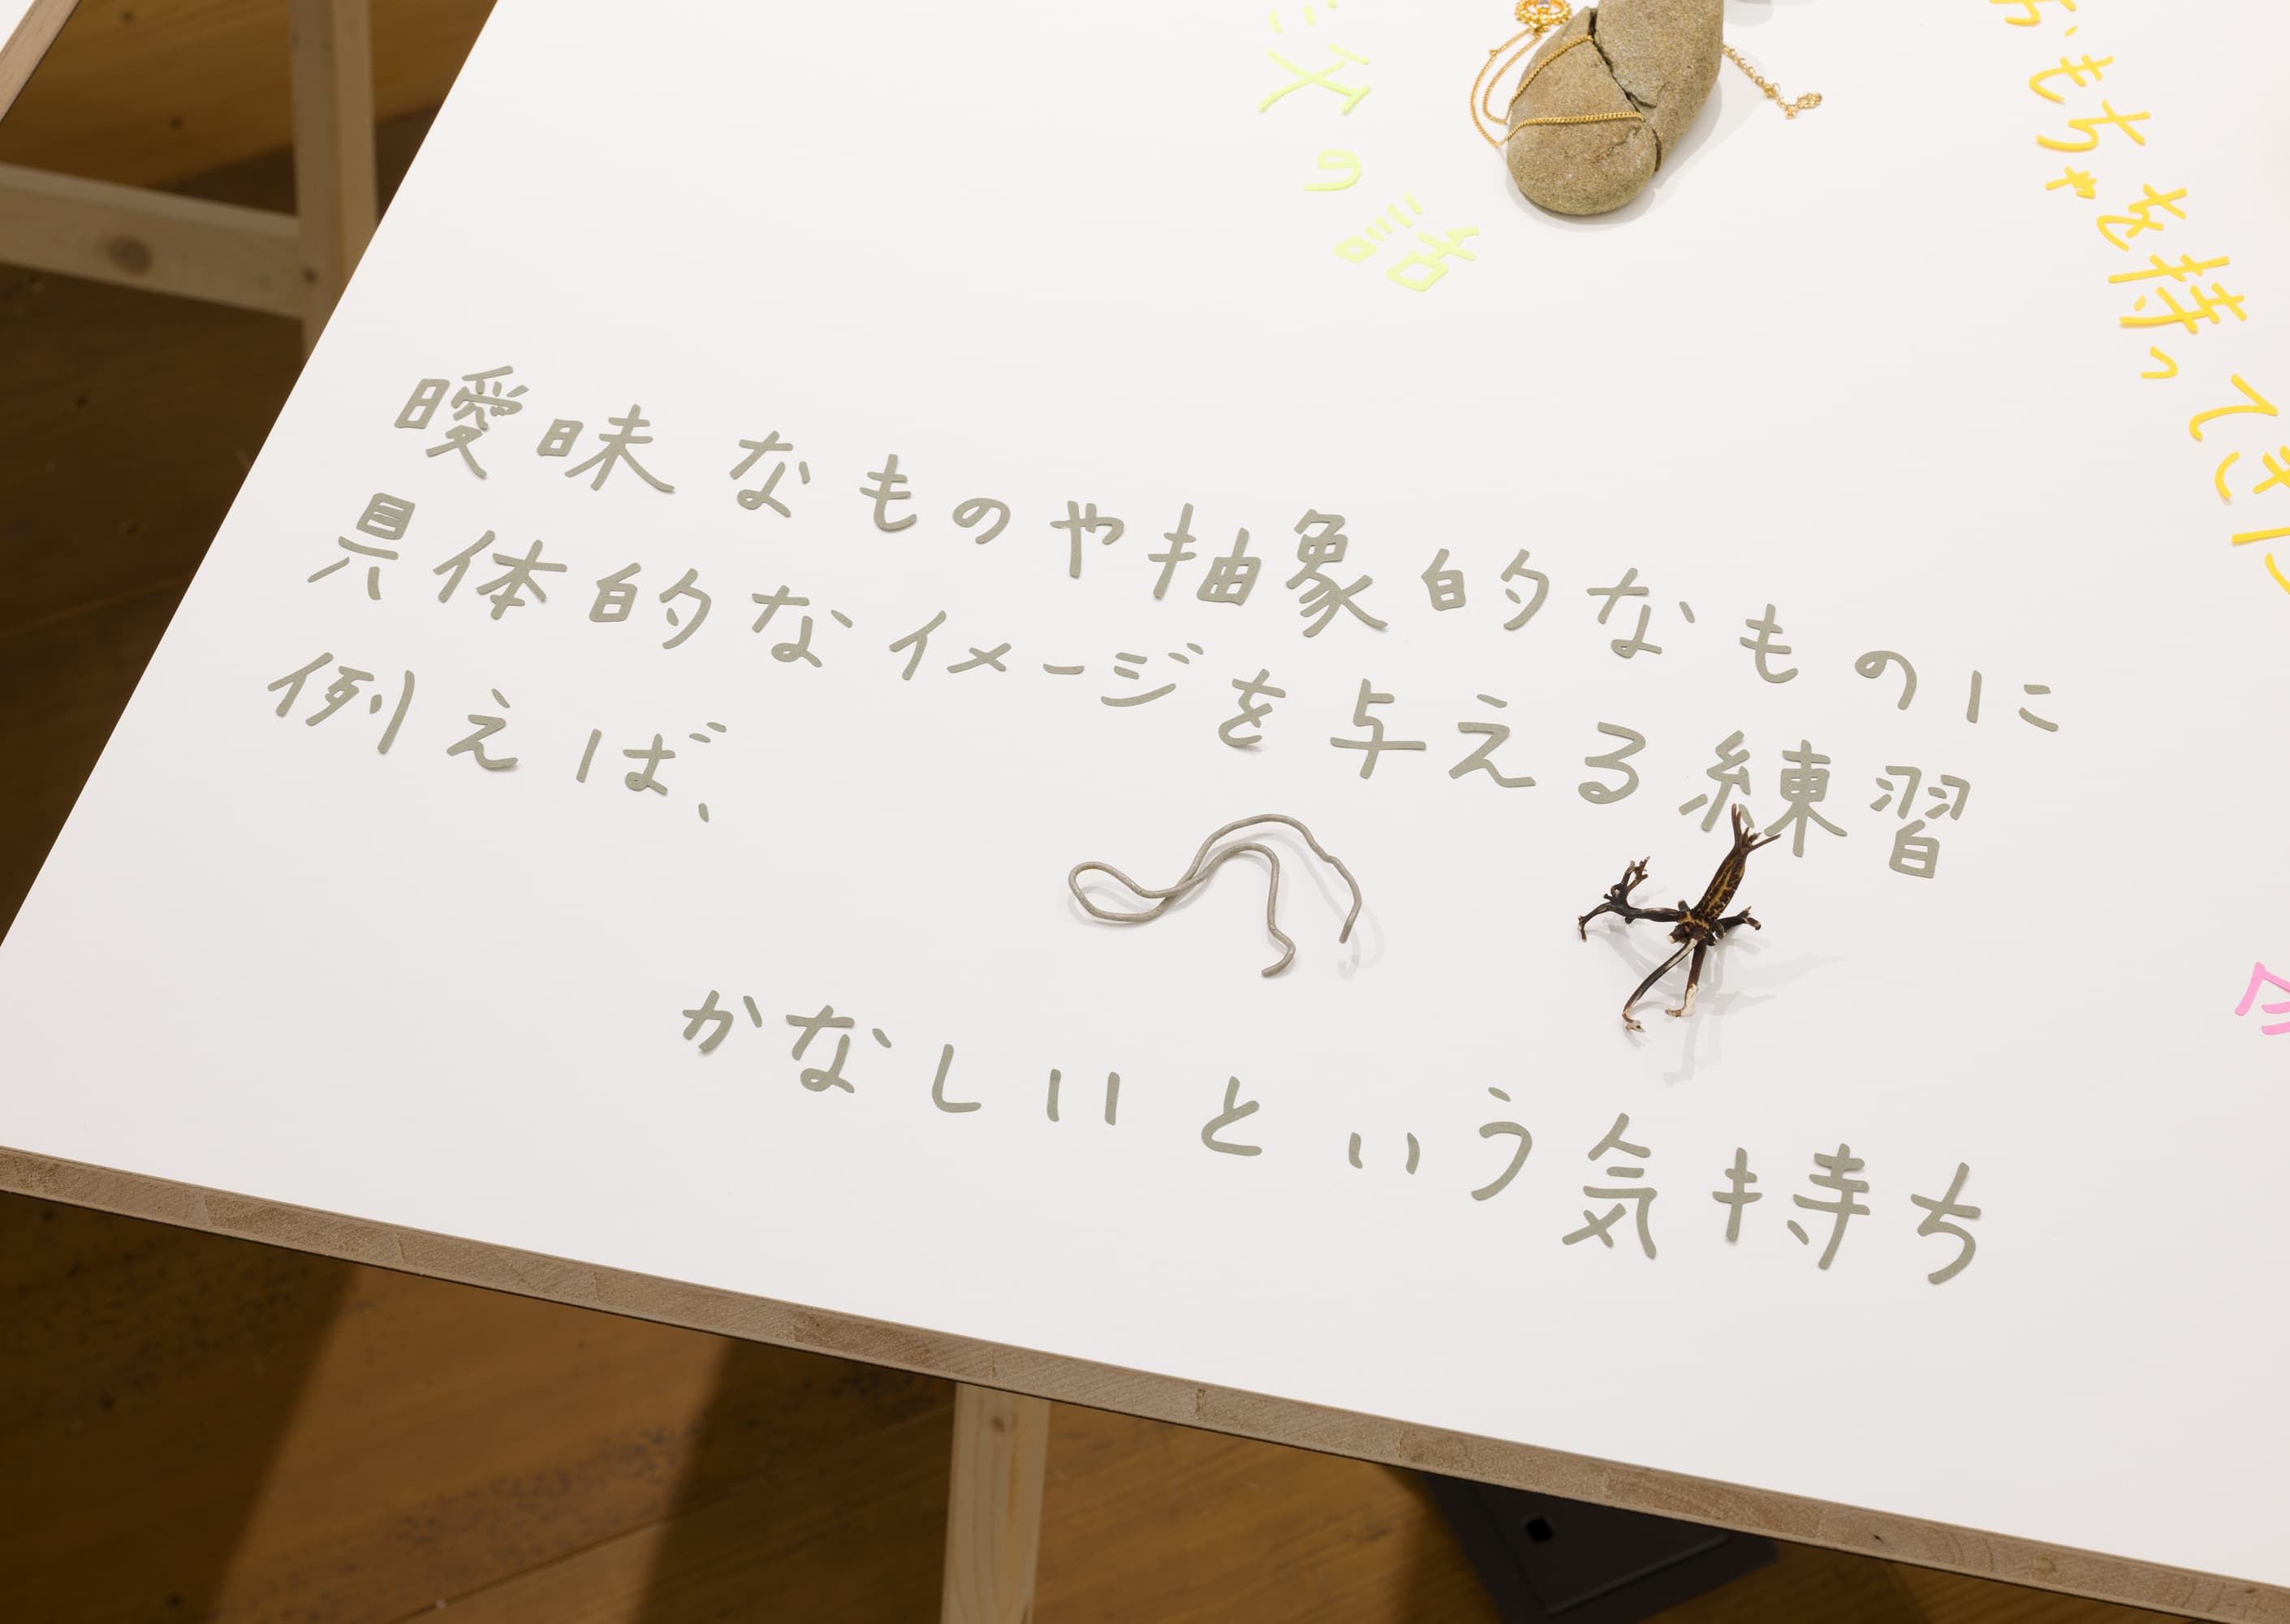 曖昧なものや抽象的なものに
具体的なイメージを与える練習
例えば、
かなしいという気持ち
父の話
もちゃを持ってき